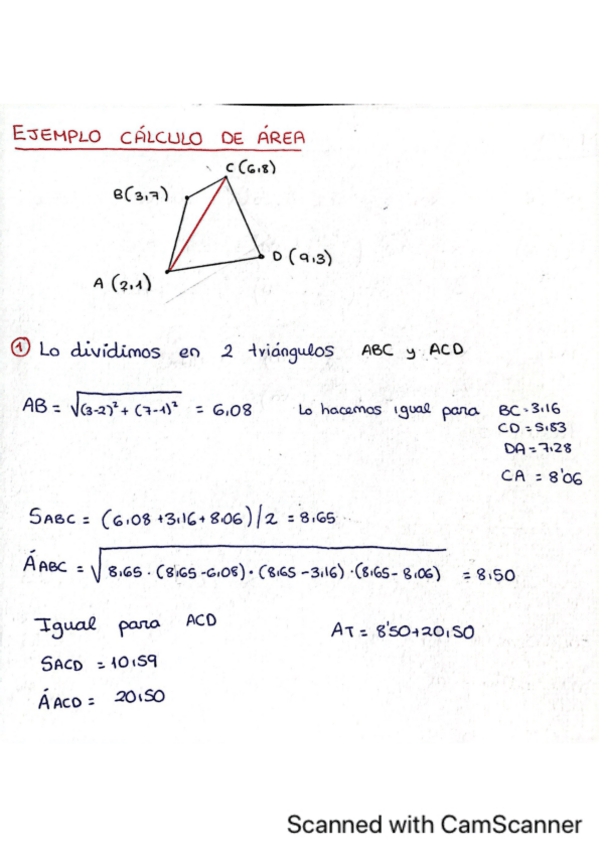 EJEMPLO CÁLCULO DE ÁREA
C (6,8)
B(3,7)
D (9,3)
A (2,1)
① Lo dividimos en 2 triángulos ABC y ACD
AB = √(3-2)² + (7-1)² = 6,08 Lo hacemos igual para BC = 3,16
CD = 5,83
DA = 7,28
CA = 8'06
SABC = (6,08 + 3,16 + 8,06)/2 = 8,65
ÁABC = √8,65 · (8,65 - 6,08) · (8,65 - 3,16) · (8,65 - 8,06) = 8,50
Igual para ACD
AT = 8'50 + 20,50
SACD = 10,59
ÁACD = 20,50
Scanned with CamScanner